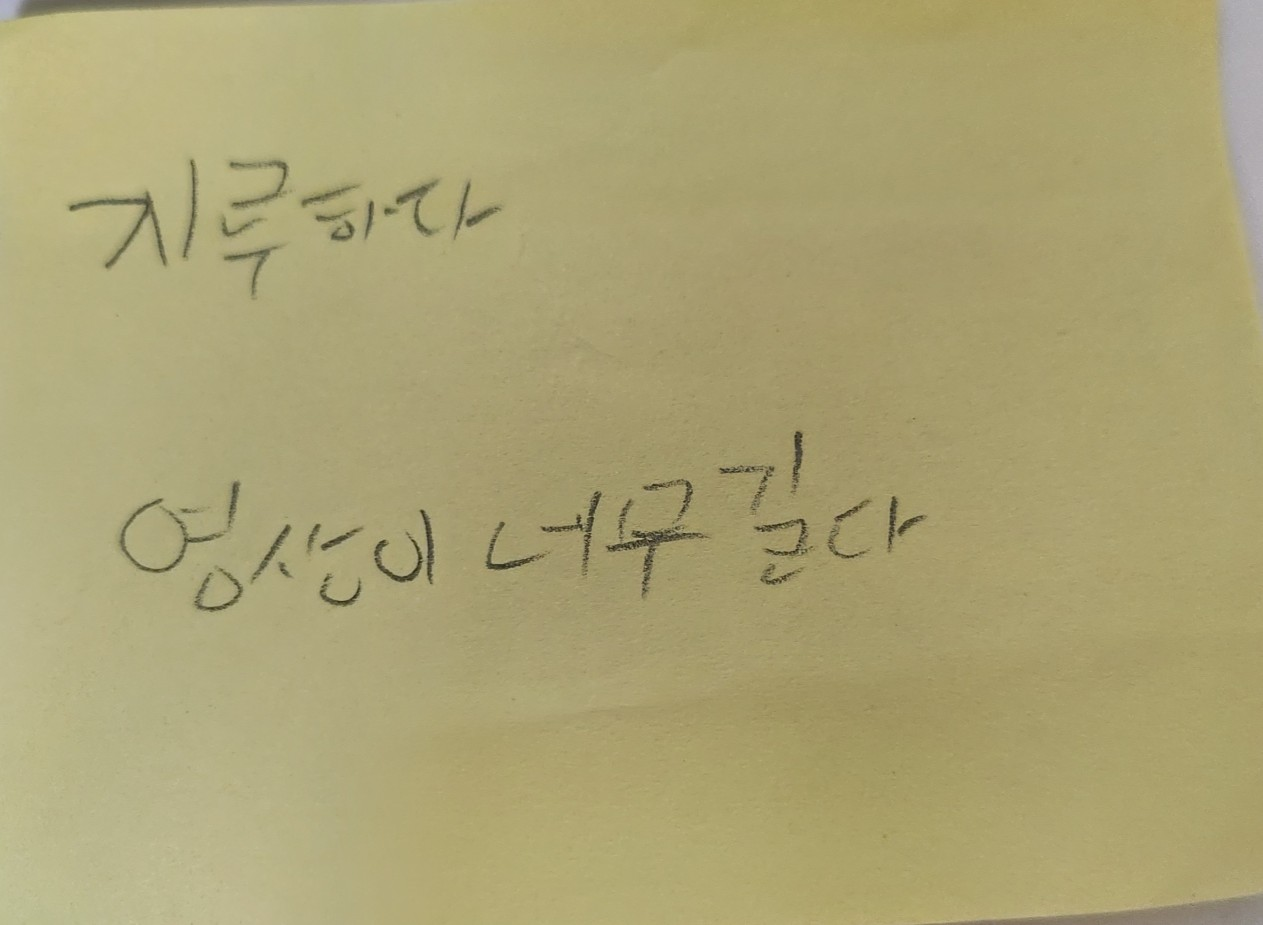 지루하다
영상이 너무 길다